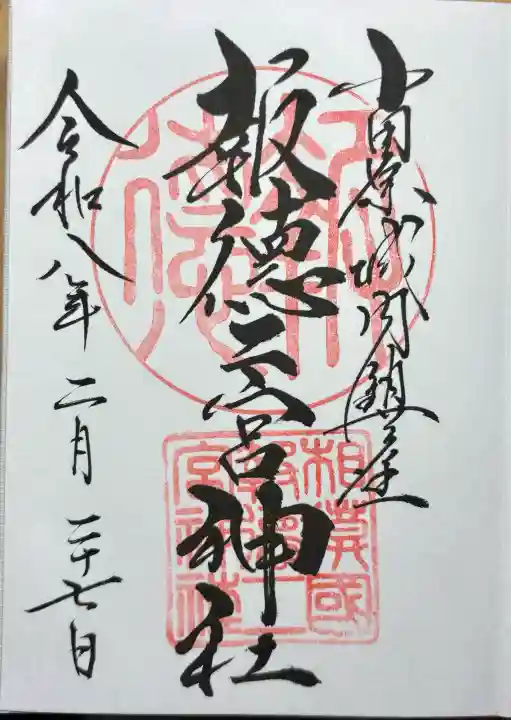 小田原城内鎮座
報徳二宮神社
令和八年二月二十七日
相模國
報徳二
宮神社